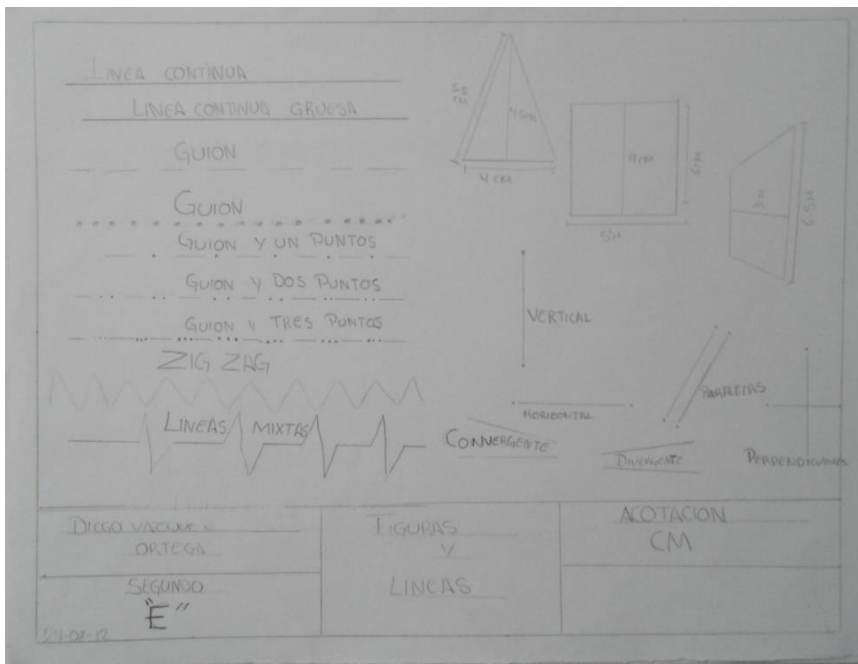 LINEA CONTINUA
LINEA CONTINUA GRUESA
GUION
GUION
GUION Y UN PUNTOS
GUION Y DOS PUNTOS
GUION Y TRES PUNTOS
ZIG ZAG
LINEAS MIXTAS
5.5 CM
4.5CM
4 CM
6CM
6.5
VERTICAL
HORIZONTAL
PARALELAS
CONVERGENTE
DIVERGENTE
DIEGO
ORTEGA
SEGUNDO
"E"
FIGURAS
Y
LINEAS
ACOTACION
CM